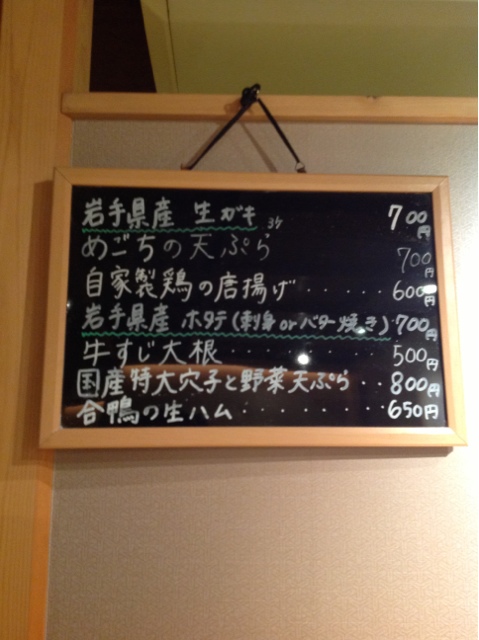 岩手県産 生ガキ 3ケ 700円
めごちの天ぷら 700円
自家製鶏の唐揚げ・・・・・600円
岩手県産 ホタテ(刺身orバター焼き)700円
牛すじ大根・・・・・・・・500円
国産特大穴子と野菜天ぷら・・800円
合鴨の生ハム・・・・・・・・650円